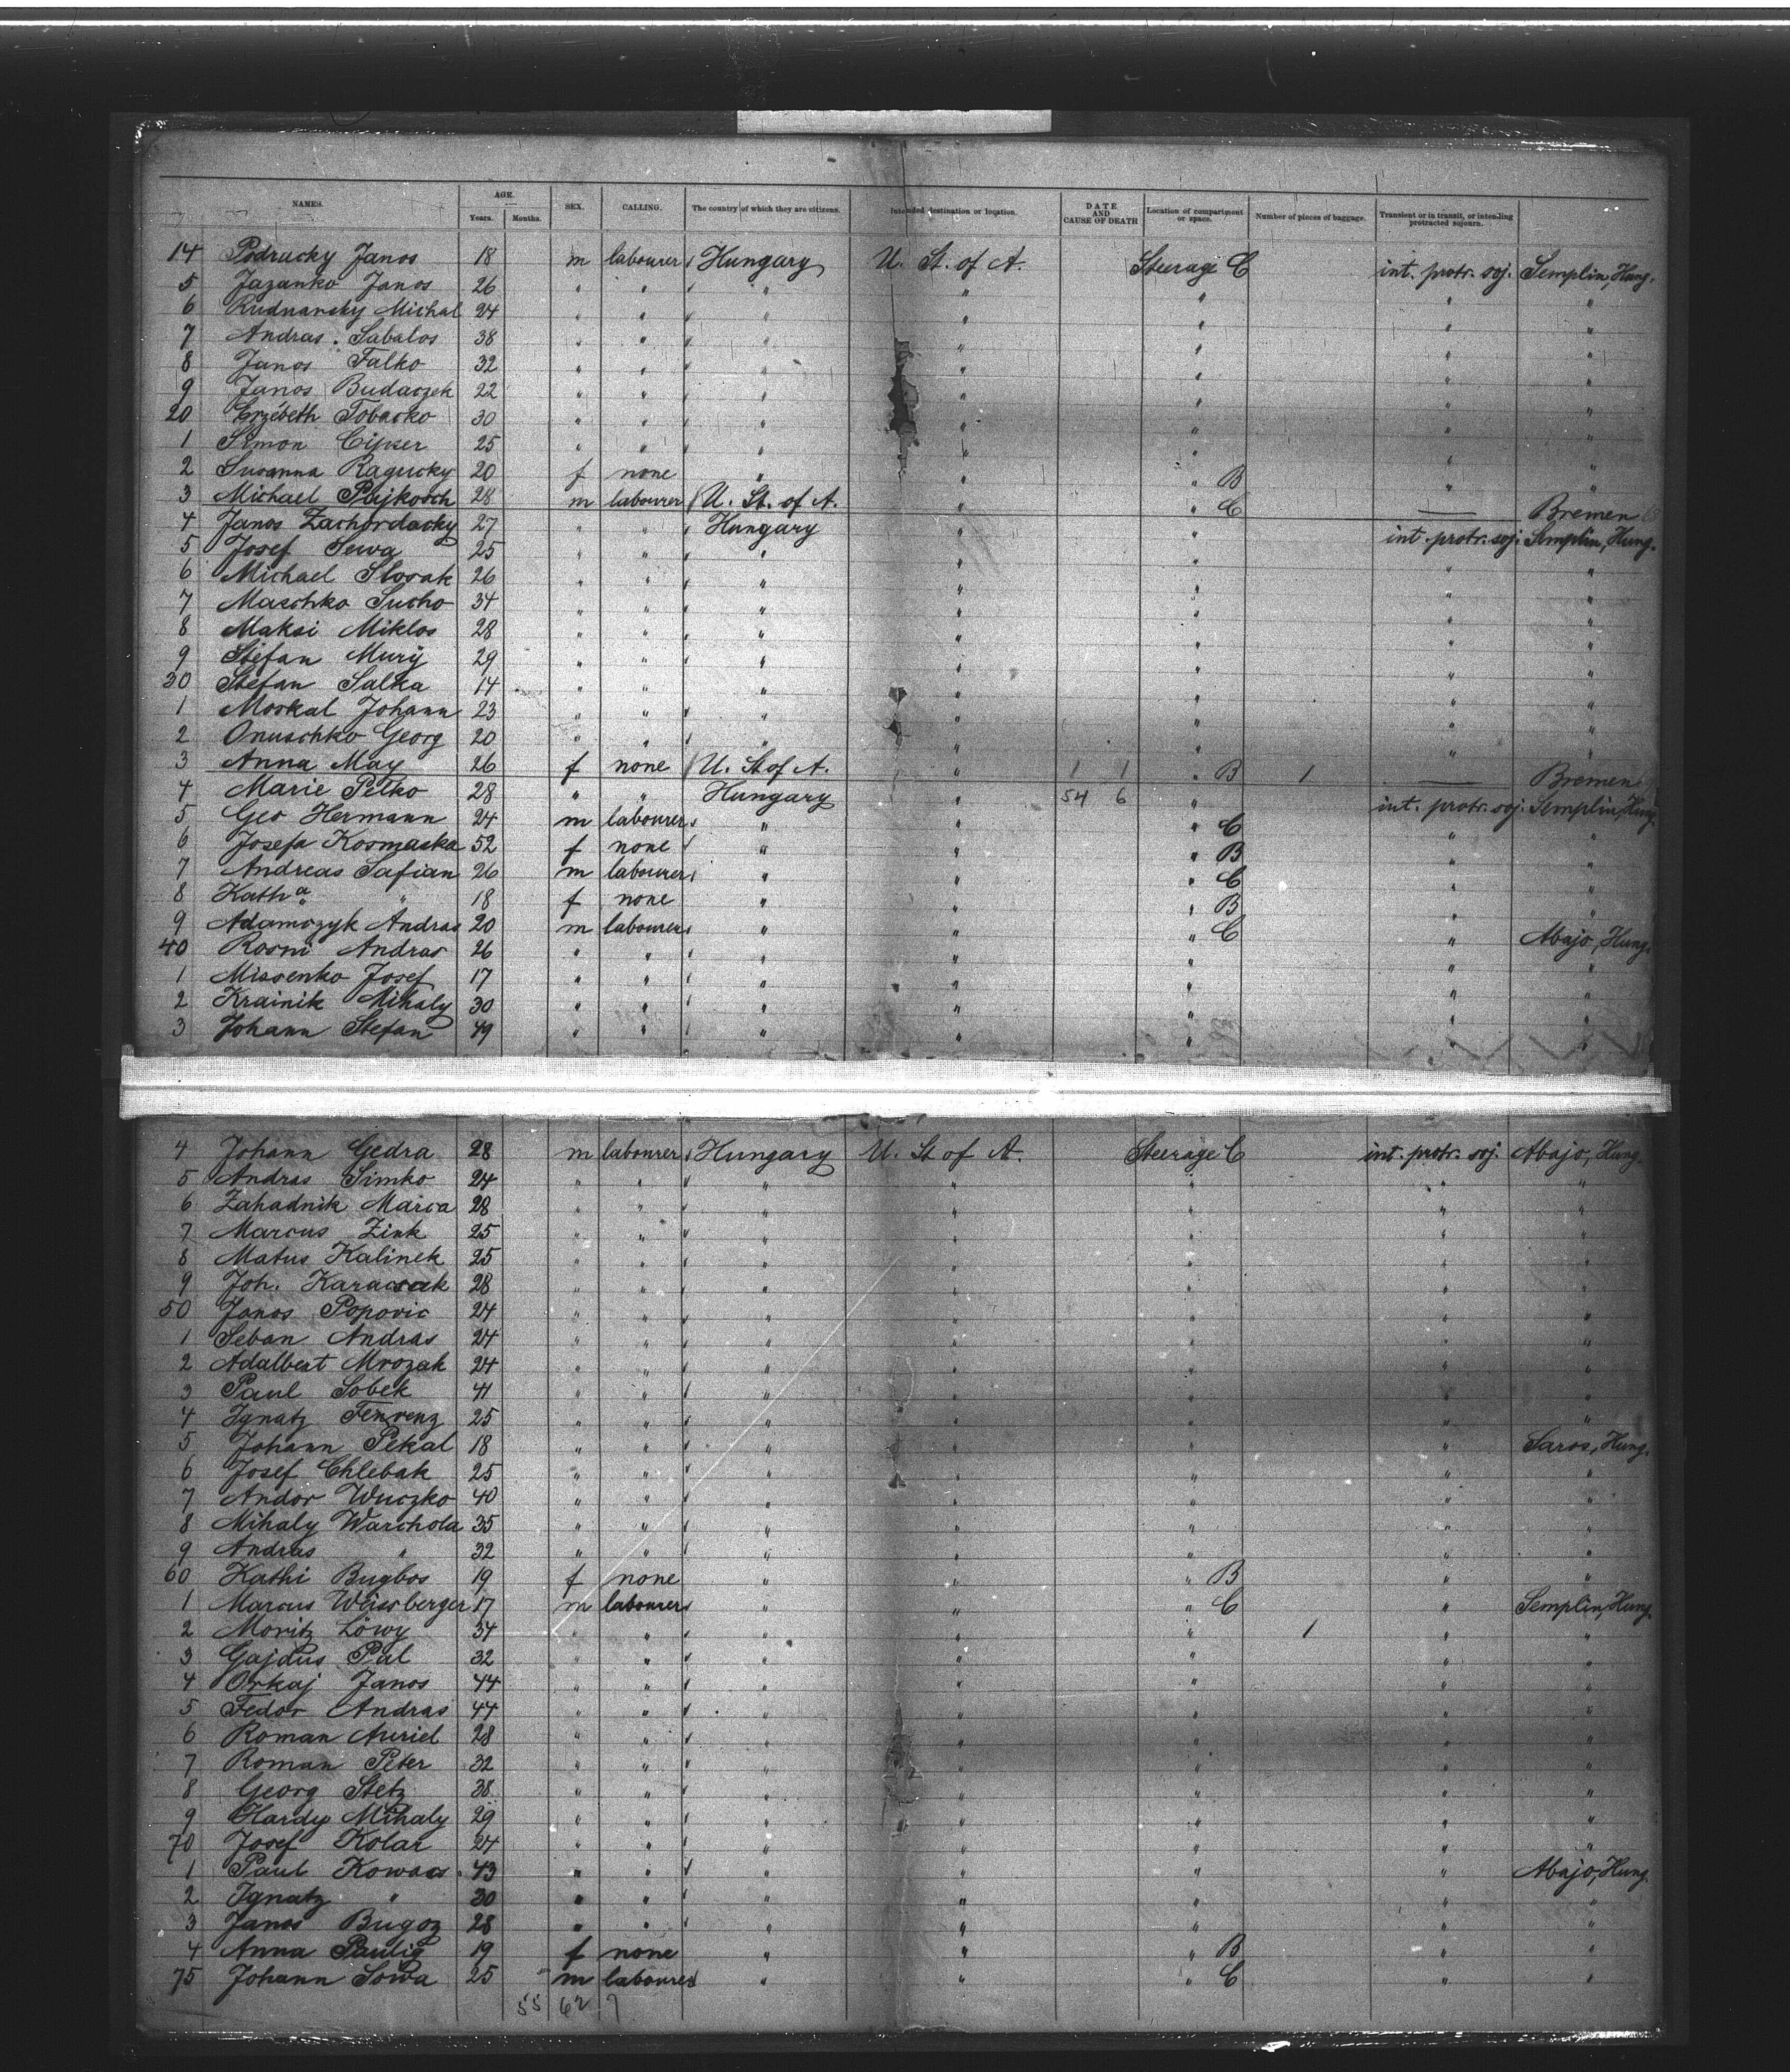 NAMES. AGE. SEX. CALLING. The country of which they are citizens. Intended destination or location. DATE AND CAUSE OF DEATH Location of compartment or space. Number of pieces of baggage. Transient or in transit, or intending protracted sojourn.
Years. Months.
14 Podrucky Janos 18 m labourer Hungary U. St. of A. Steerage C int. protr. soj. Semplin, Hung.
5 Jazanko Janos 26 " " " " " " "
6 Rudnansky Michal 24 " " " " " " "
7 Andras Sabalos 38 " " " " " " "
8 Janos Falko 32 " " " " " " "
9 Janos Budaczek 22 " " " " " " "
20 Erzébeth Tobacko 30 " " " " " " "
1 Simon Cijker 25 " " " " " " "
2 Susanna Ragucky 20 f none " " " B " "
3 Michael Pajkosch 28 m labourer U. St. of A. " " C — Bremen
4 Janos Zachordacky 27 " " Hungary " " int. protr. soj. Semplin, Hung.
5 Josef Sewa 25 " " " " " " "
6 Michael Slovak 26 " " " " " " "
7 Maschko Sucho 34 " " " " " " "
8 Maksi Miklos 28 " " " " " " "
9 Stefan Murÿ 29 " " " " " " "
30 Stefan Salka 14 " " " " " " "
1 Moskal Johann 23 " " " " " " "
2 Onuschko Georg 20 " " " " " " "
3 Anna May 26 f none U. St of A. " 1 1 " B 1 — Bremen
4 Marie Petko 28 " " Hungary " 54 6 " int. protr. soj. Semplin, Hung.
5 Geo Hermann 24 m labourer " " " C " "
6 Josefa Kosmaska 52 f none " " " B " "
7 Andreas Safian 26 m labourer " " " C " "
8 Katha " 18 f none " " " B " "
9 Adamczyk Andras 20 m labourer " " " C " Abajo, Hung.
40 Rosni Andras 26 " " " " " " "
1 Missenko Josef 17 " " " " " " "
2 Krainik Mihaly 30 " " " " " " "
3 Johann Stefan 49 " " " " " " "
4 Johann Gedra 28 m labourer Hungary U. St of A. Steerage C int. protr. soj. Abajo, Hung.
5 Andras Simko 24 " " " " " " "
6 Zahadnik Marca 28 " " " " " " "
7 Marcus Zink 25 " " " " " " "
8 Matus Kalinek 25 " " " " " " "
9 Joh. Karacsak 28 " " " " " " "
50 Janos Popovic 24 " " " " " " "
1 Seban Andras 24 " " " " " " "
2 Adalbert Mrozak 24 " " " " " " "
3 Paul Sobek 41 " " " " " " "
4 Ignatz Fenrenz 25 " " " " " " "
5 Johann Pekal 18 " " " " " " Saros, Hung.
6 Josef Chlebak 25 " " " " " " "
7 Andor Wuczko 40 " " " " " " "
8 Mihaly Warchola 35 " " " " " " "
9 Andras " 32 " " " " " " "
60 Kathi Bugbos 19 f none " " " B " "
1 Marcus Weissberger 17 m labourer " " " C " Semplin, Hung.
2 Moritz Löwy 34 " " " " " 1 " "
3 Gajdus Pal 32 " " " " " " "
4 Orkaj Janos 44 " " " " " " "
5 Fedor Andras 44 " " " " " " "
6 Roman Auriel 28 " " " " " " "
7 Roman Peter 32 " " " " " " "
8 Georg Stetz 38 " " " " " " "
9 Hardy Mihaly 29 " " " " " " "
70 Josef Kolar 24 " " " " " " "
1 Paul Kowacs 43 " " " " " " Abajo, Hung.
2 Ignatz " 30 " " " " " " "
3 Janos Bugoz 28 " " " " " " "
4 Anna Paulig 19 f none " " " B " "
75 Johann Sowa 25 m labourer " " " C " "
55 62